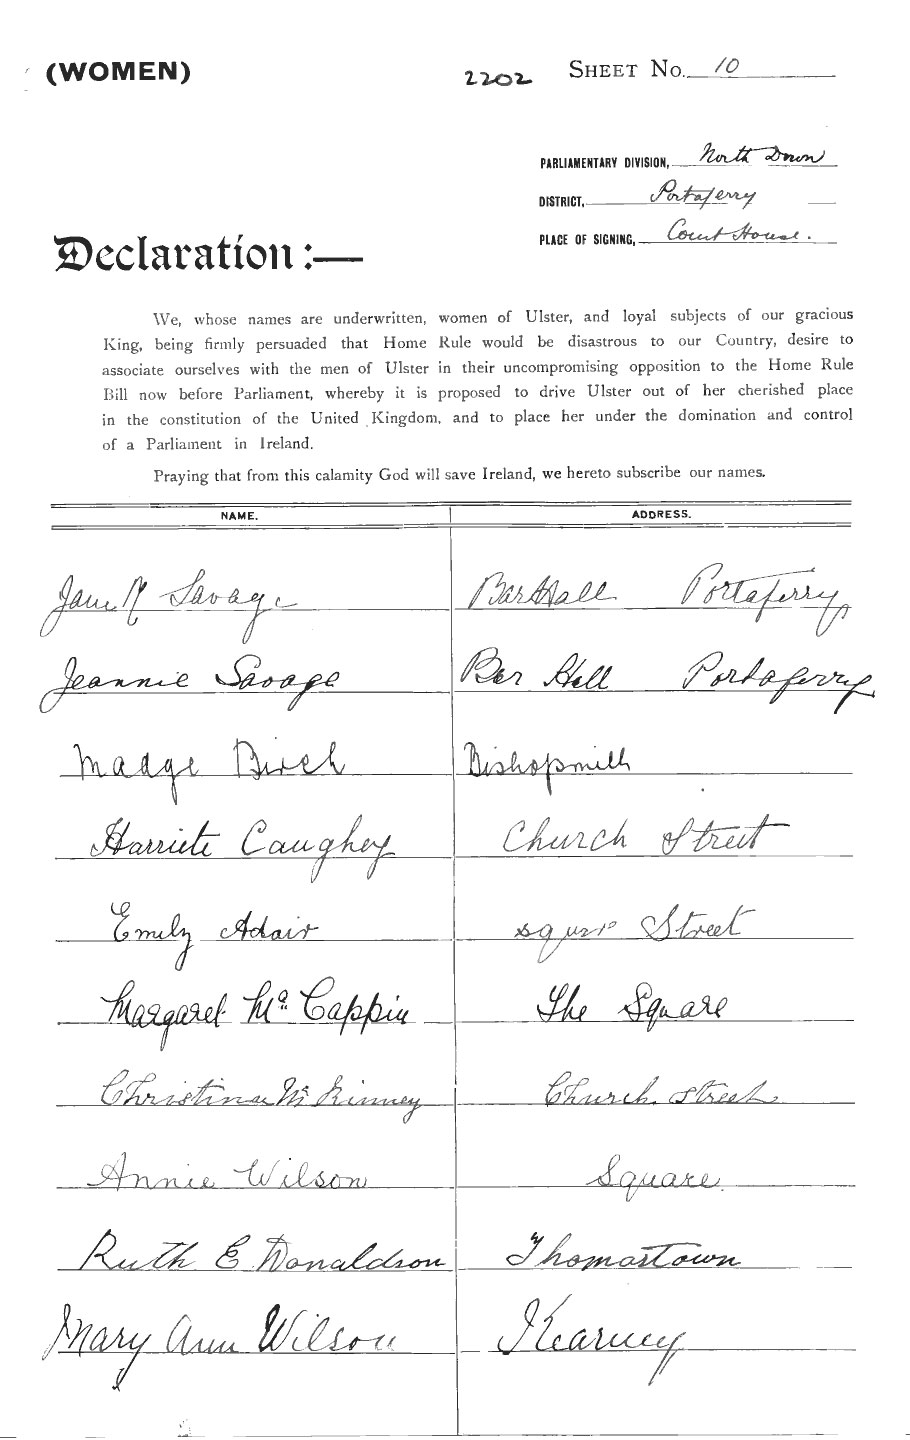 (WOMEN)
2202 SHEET NO. 10
PARLIAMENTARY DIVISION, North Down
DISTRICT, Portaferry
PLACE OF SIGNING, Court House.
Declaration :—
We, whose names are underwritten, women of Ulster, and loyal subjects of our gracious
King, being firmly persuaded that Home Rule would be disastrous to our Country, desire to
associate ourselves with the men of Ulster in their uncompromising opposition to the Home Rule
Bill now before Parliament, whereby it is proposed to drive Ulster out of her cherished place
in the constitution of the United Kingdom, and to place her under the domination and control
of a Parliament in Ireland.
Praying that from this calamity God will save Ireland, we hereto subscribe our names.
NAME. ADDRESS.
Jane Savage BarHall Portaferry
Jeannie Savage Bar Hall Portaferry
Madge Birch Bishopmill
Harriete Caughey Church Street
Emily Adair Street
Margaret Mc Cappin The Square
Christina Mc Kinney Church street
Annie Wilson Square
Ruth E Donaldson Thomastown
Mary Ann Wilson Kearney